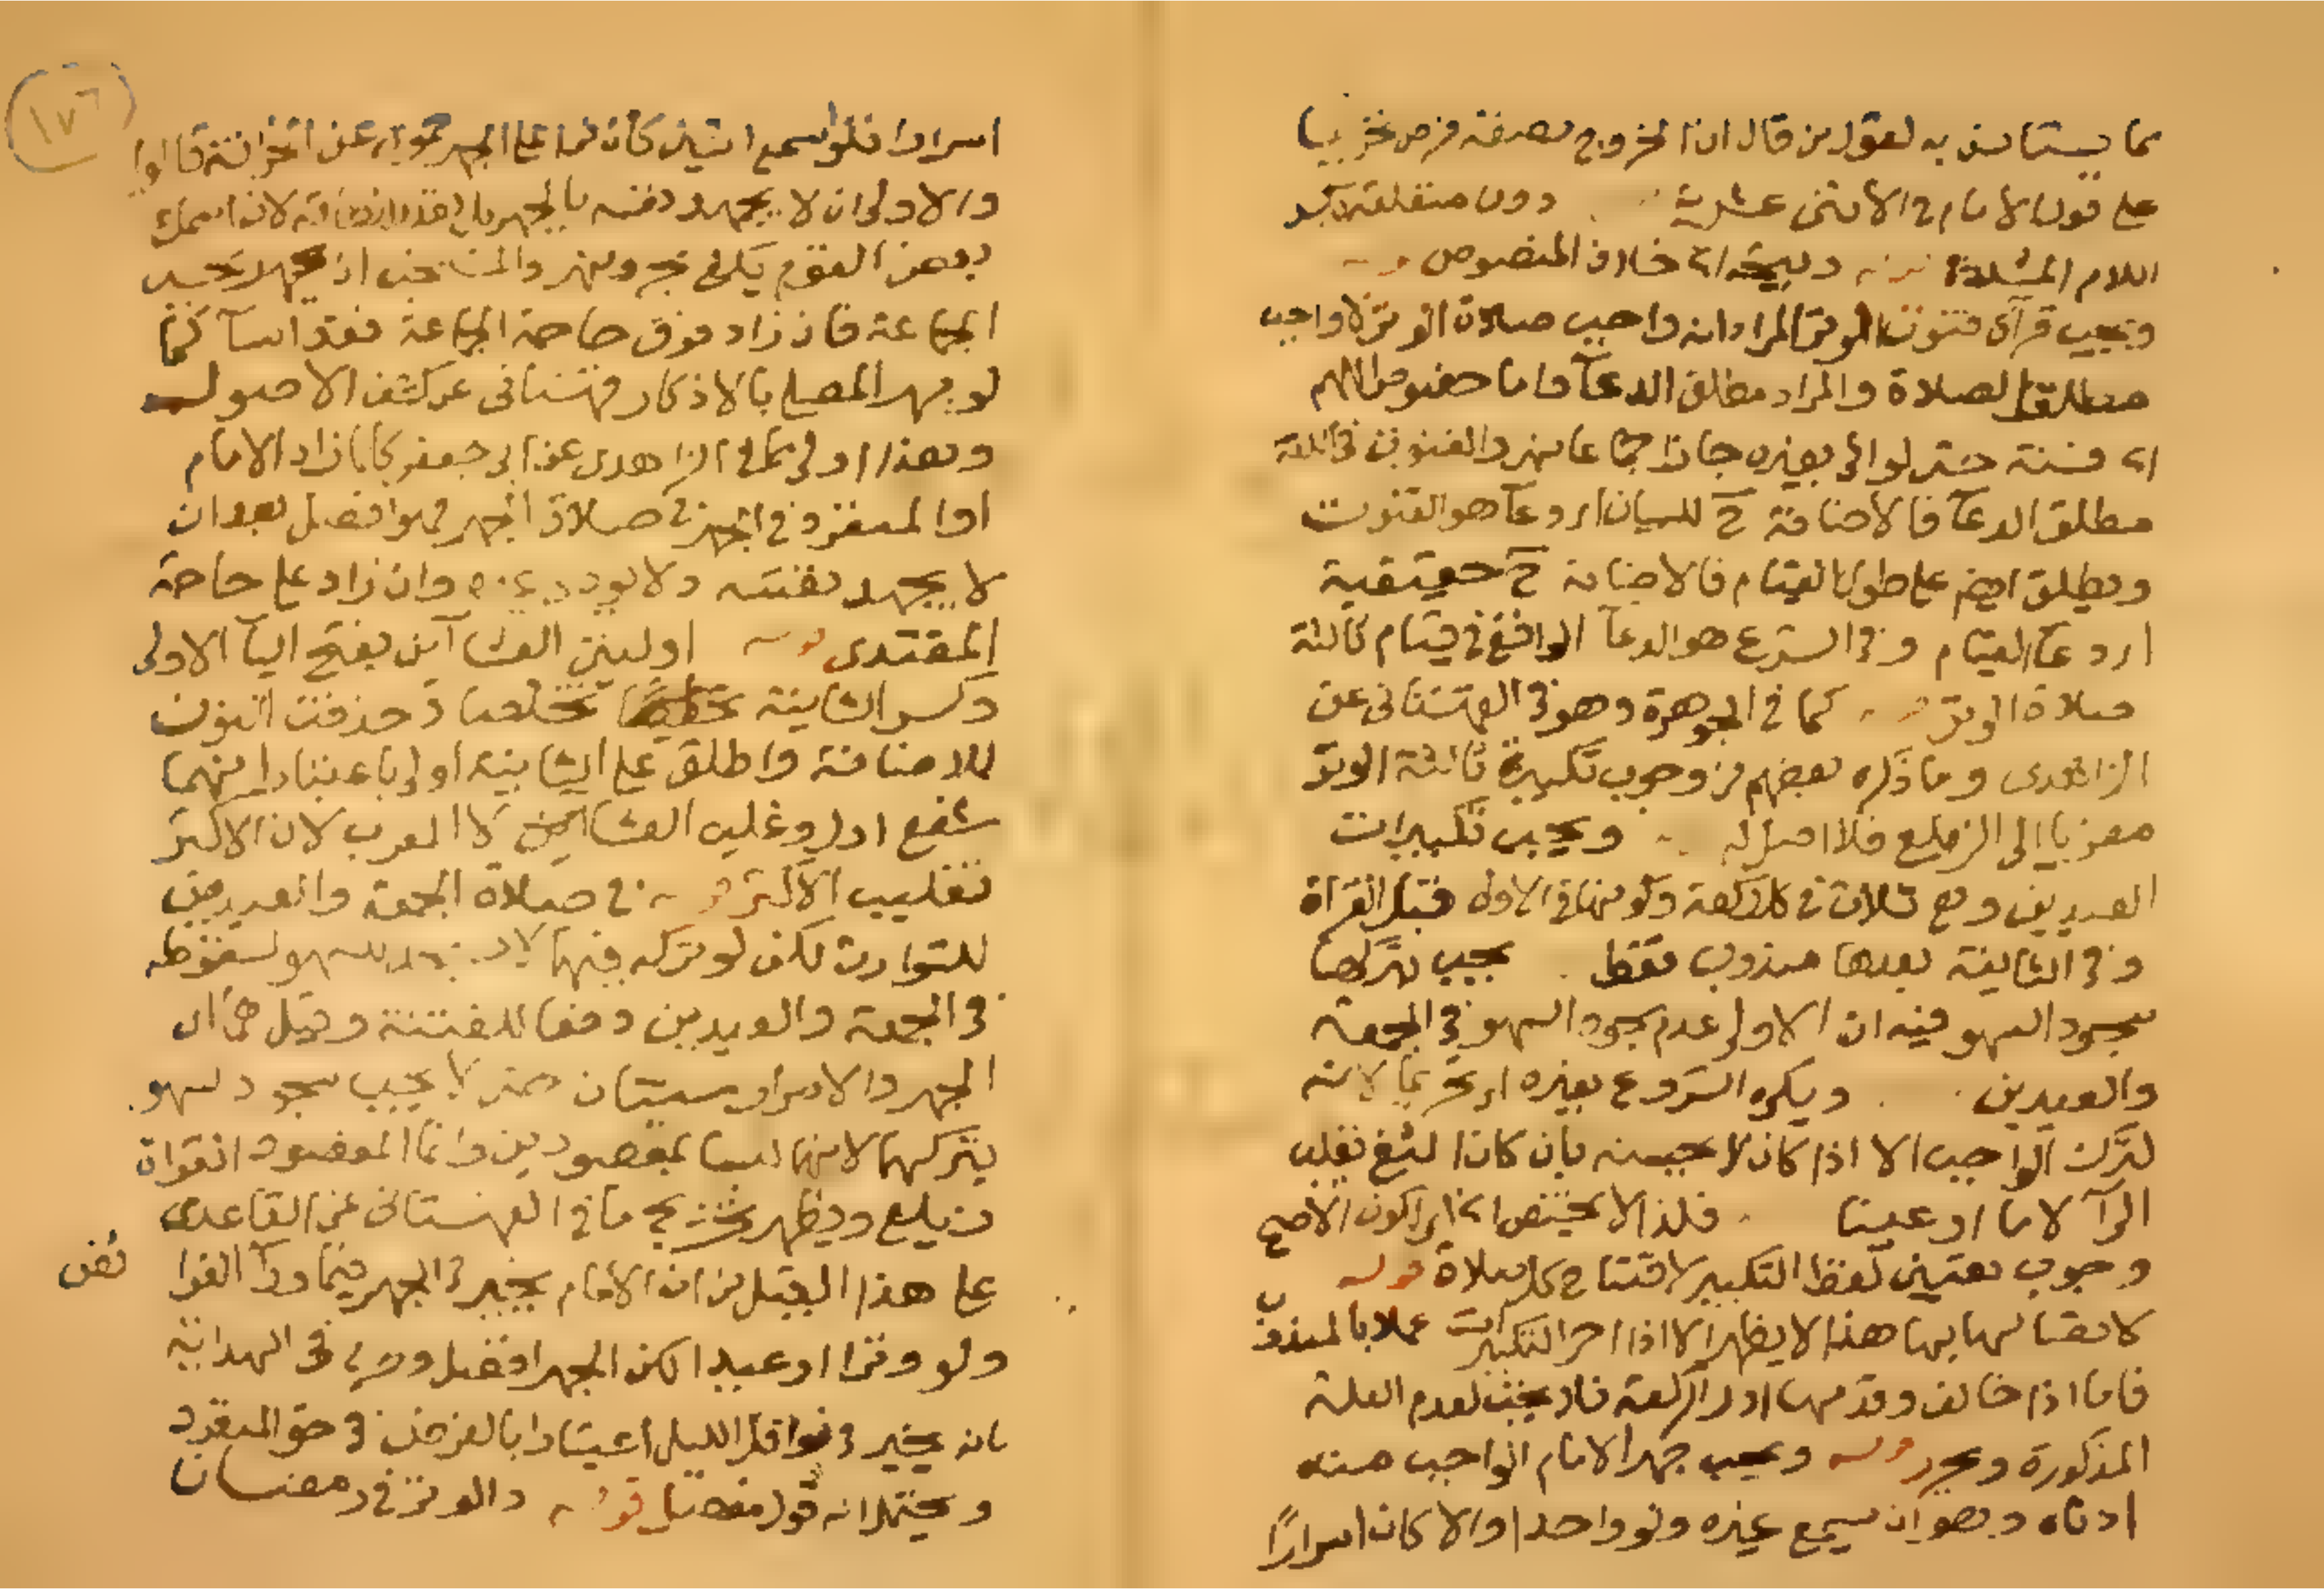 مما يستانس به لقول من قال ان الخروج بصنعه فرض تخريبا
على قول الامام في الاثنى عشرية دون متعلقه كبد
اللام المشددة قوله ويتجه اى خلاف المنصوص قوله
ويجب قرآة قنوت الوتر المراد انه واجب صلاة الوتر لا واجب
مطلق الصلاة والمراد مطلق الدعآ واما خصوص اللهم
اى فسنة حتى لو اتى بغيره جاز اجماعا نهر والقنوت في اللغة
مطلق الدعآ فالاضافة ح للبيان اى دعآ هو القنوت
ويطلق ايضم على طول القيام فالاضافة ح حقيقية
اى دعآ القيام وفي الشرع هو الدعآ الواقع في قيام ثالثة
صلاة الوتر قوله كما في الجوهرة وهو في القهستانى عن
الزاهدى وما ذكره بعضهم من وجوب تكبيرة ثالثة الوتر
معزيا الى الزيلع فلا اصل له ويجب تكبيرات
العيدين وهى ثلاث في كل ركعة وكونها في الاولى قبل القرآة
وفى الثانية بعدها مندوب فقط يجب بتركها
سجود السهو فيه ان الاولى عدم سجود السهو في الجمعة
والعيدين ويكره الشروع بغيره اى تحريما لانه
لترك الواجب الا اذا كان لا يحسنه بان كان الثغ بقلب
الرآ لاما او عينا فلذا لا يختص اى كون الاصح
وجوب تعيين لفظ التكبير لافتتاح كل صلاة قوله
لاتصالها بها هذا لا يظهر الا اذا اخر التكبيرات عملا بالمندوب
فاما اذا خالف وقدمها اول الركعة فلا يجب لعدم العلة
المذكورة ويحرر قوله ويجب جهر الامام الواجب منه
ادناه وهو ان يسمع غيره ولو واحدا والا كان اسرارًا
اسرارا فلو اسمع اثنين كان من اعلى الجهر حموى عن الخزانة قالوا
والاولى ان لا يجهد نفسه بالجهر بل بقدر الطاقة لان اسماع
بعض القوم يكفى بحر ونهر والمستحب ان يجهر بحسب
الجماعة فان زاد فوق حاجة الجماعة فقد اسآ كما
لو جهر المصلى بالاذكار قهستانى عن كشف الاصول
وهذا اولى مما في الزاهدى عن ابى جعفر كلما زاد الامام
او المنفرد في الجهر في صلاة الجهر فهو افضل بعد ان
لا يجهد نفسه ولا يؤذى غيره وان زاد على حاجة
المقتدى قوله اوليى العشآئين بفتح اليآ الاولى
وكسر الثانية تخلصا وحذفت النون
للاضافة واطلق على الثانية اولى باعتبار انهما
شفع اول وغلب العشا ايضم لا المغرب لان الاكثر
تغليب الاكثر قوله في صلاة الجمعة والعيدين
للتوارث لكن لو تركه فيهما لا يسجد للسهو لسقوطه
في الجمعة والعيدين دفعا للفتنة وقيل هما اى
الجهر والاسرار سنتان حتى لا يجب سجود لسهو
بتركهما لانهما ليسا بمقصودين وانما المقصود القراة
زيلع ويظهر تخريج ما في القهستانى عن القاعدى
على هذا القيل من ان الامام يخير في الجهر فيما ورآ الفرا
ئض
ولو وترا او عيدا لكن الجهر افضل وصرح في الهداية
بانه يخير في نوافل الليل اعتبارا بالفرض في حق المنفرد
ويحتمل انه قول مفصل قوله والوتر في رمضان
١٧٦